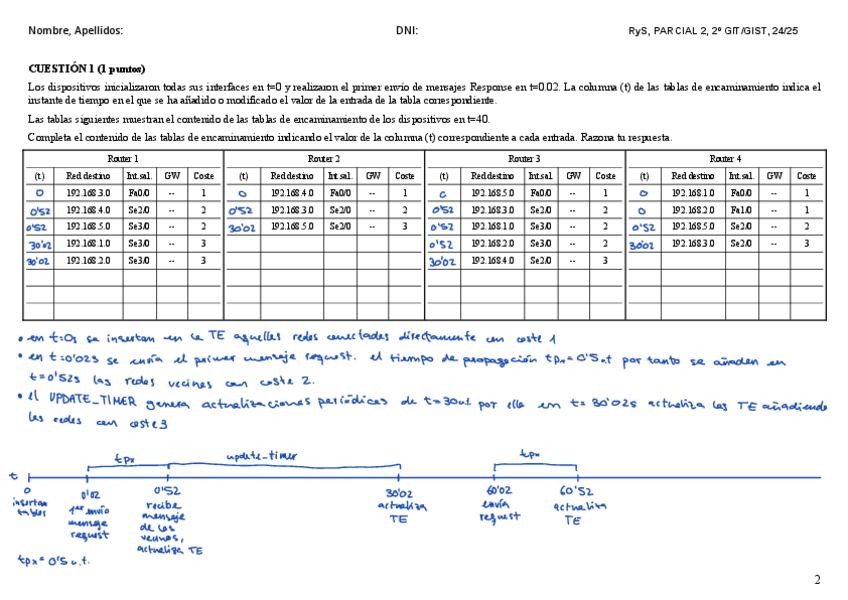 Nombre, Apellidos: DNI: RyS, PARCIAL 2, 2º GIT/GIST, 24/25
CUESTIÓN 1 (1 puntos)
Los dispositivos inicializaron todas sus interfaces en t=0 y realizaron el primer envío de mensajes Response en t=0.02. La columna (t) de las tablas de encaminamiento indica el
instante de tiempo en el que se ha añadido o modificado el valor de la entrada de la tabla correspondiente.
Las tablas siguientes muestran el contenido de las tablas de encaminamiento de los dispositivos en t=40.
Completa el contenido de las tablas de encaminamiento indicando el valor de la columna (t) correspondiente a cada entrada. Razona tu respuesta.
Router 1 Router 2 Router 3 Router 4
(t) Red destino Int.sal. GW Coste (t) Red destino Int.sal. GW Coste (t) Red destino Int.sal. GW Coste (t) Red destino Int.sal. GW Coste
0 192.168.3.0 Fa0/0 -- 1 0 192.168.4.0 Fa0/0 -- 1 0 192.168.5.0 Fa0/0 -- 1 0 192.168.1.0 Fa0/0 -- 1
0'52 192.168.4.0 Se2/0 -- 2 0'52 192.168.3.0 Se2/0 -- 2 0'52 192.168.3.0 Se2/0 -- 2 0 192.168.2.0 Fa1/0 -- 1
0'52 192.168.5.0 Se3/0 -- 2 30'02 192.168.5.0 Se2/0 -- 3 0'52 192.168.1.0 Se3/0 -- 2 0'52 192.168.5.0 Se2/0 -- 2
30'02 192.168.1.0 Se3/0 -- 3 0'52 192.168.2.0 Se3/0 -- 2 30'02 192.168.3.0 Se2/0 -- 3
30'02 192.168.2.0 Se3/0 -- 3 30'02 192.168.4.0 Se2/0 -- 3
• en t=0s se insertan en la TE aquellas redes conectadas directamente con coste 1
• en t=0'02s se envía el primer mensaje request. el tiempo de propagación tpx=0'5u.t por tanto se añaden en
t=0'52s las redes vecinas con coste 2.
• el UPDATE_TIMER genera actualizaciones periódicas de t=30u.t por ello en t=30'02s actualiza las TE añadiendo
las redes con coste 3
tpx update-timer tpx
t
0 0'02 0'52 30'02 60'02 60'52
insertan 1er envío recibe actualiza envía actualiza
tablas mensaje mensaje TE request TE
request de los
vecinos,
actualiza TE
tpx = 0'5 u.t.
2